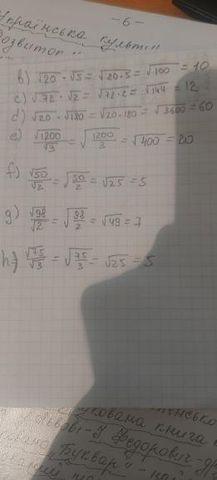 Українська культ
Розвиток "
- 6 -
b) √20 · √5 = √20·5 = √100 = 10
c) √72 · √2 = √72·2 = √144 = 12
d) √20 · √180 = √20·180 = √3600 = 60
e) √1200/√3 = √1200/3 = √400 = 20
f) √50/√2 = √50/2 = √25 = 5
g) √98/√2 = √98/2 = √49 = 7
h) √75/√3 = √75/3 = √25 = 5
друкована книга
Федорович
"Буквар" - на